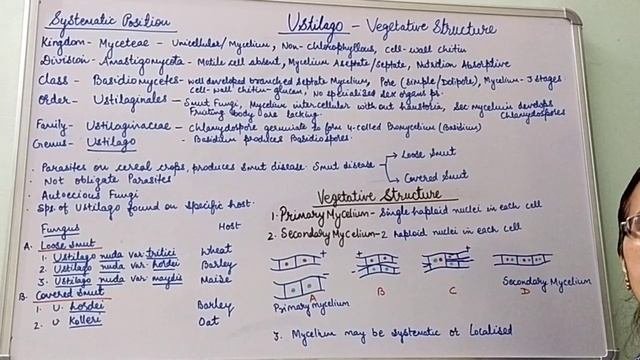 Systematic Position
Ustilago - Vegetative Structure
Kingdom- Myceteae - Unicellular/Mycelium, Non-Chlorophyllous, cell-wall chitin
Division- Amastigomycota - Motile cell absent, Mycelium Aseptate/septate, Nutrition Absorptive
Class - Basidiomycetes- well developed branched septate Mycelium, Pore (simple/Dolipore), Mycelium-3 stages
cell-wall chitin-glucan, No specialized sex organs ps.
Order- Ustilaginales - Smut Fungi, Mycelium intercellular with out haustoria, Sec Mycelium develops Chlamydospores
Fruiting body are lacking.
Family- Ustilaginaceae - Chlamydospore germinate to form 4-celled Promycelium (Basidium)
Genus- Ustilago - Basidium produces Basidiospores.
· Parasites on cereal crops, produces Smut disease. Smut disease
Loose Smut
Covered Smut
· Not obligate Parasites
· Autoecious Fungi
· Sps. of Ustilago found on specific host.
Fungus Host
A. Loose Smut
1. Ustilago nuda var. tritici Wheat
2. Ustilago nuda var. hordei Barley
3. Ustilago nuda var. maydis Maise
B. Covered Smut
1. U. hordei Barley
2. U Kolleri Oat
Vegetative Structure
1. Primary Mycelium - Single haploid nuclei in each cell
2. Secondary Mycelium - 2 haploid nuclei in each cell
+ + +
- -
A B C D
Primary mycelium
Secondary Mycelium
3. Mycelium may be systematic or localised